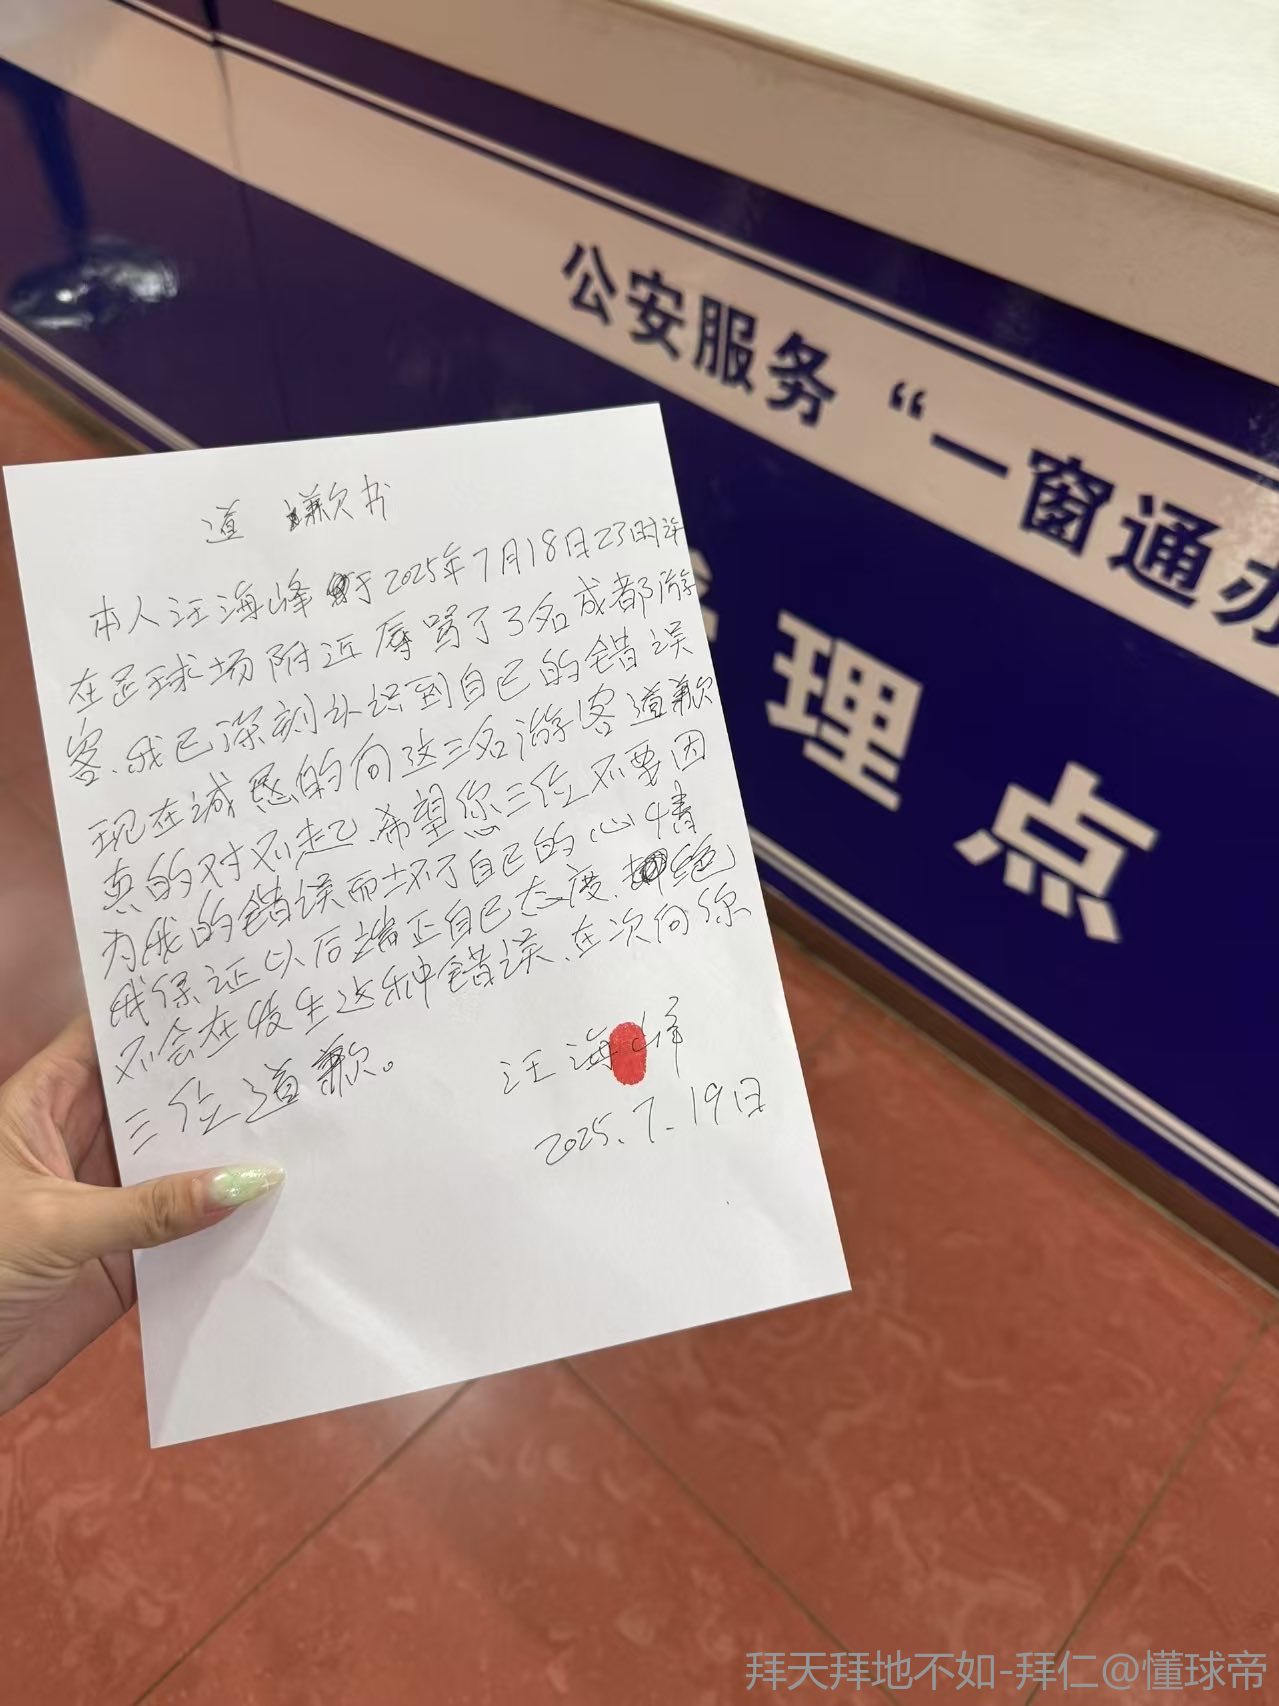 公安服务“一窗通办
理点
道歉书
本人汪海峰于2025年7月18日23时许
在足球场附近辱骂了3名成都游
客、我已深刻认识到自己的错误
现在诚恳的向这三名游客道歉
真的对不起、希望您三位不要因
为我的错误而坏了自己的心情
我保证以后端正自己态度、绝
不会在发生这种错误、在次向你
三位道歉。
汪海峰
2025.7.19日
拜天拜地不如-拜仁@懂球帝